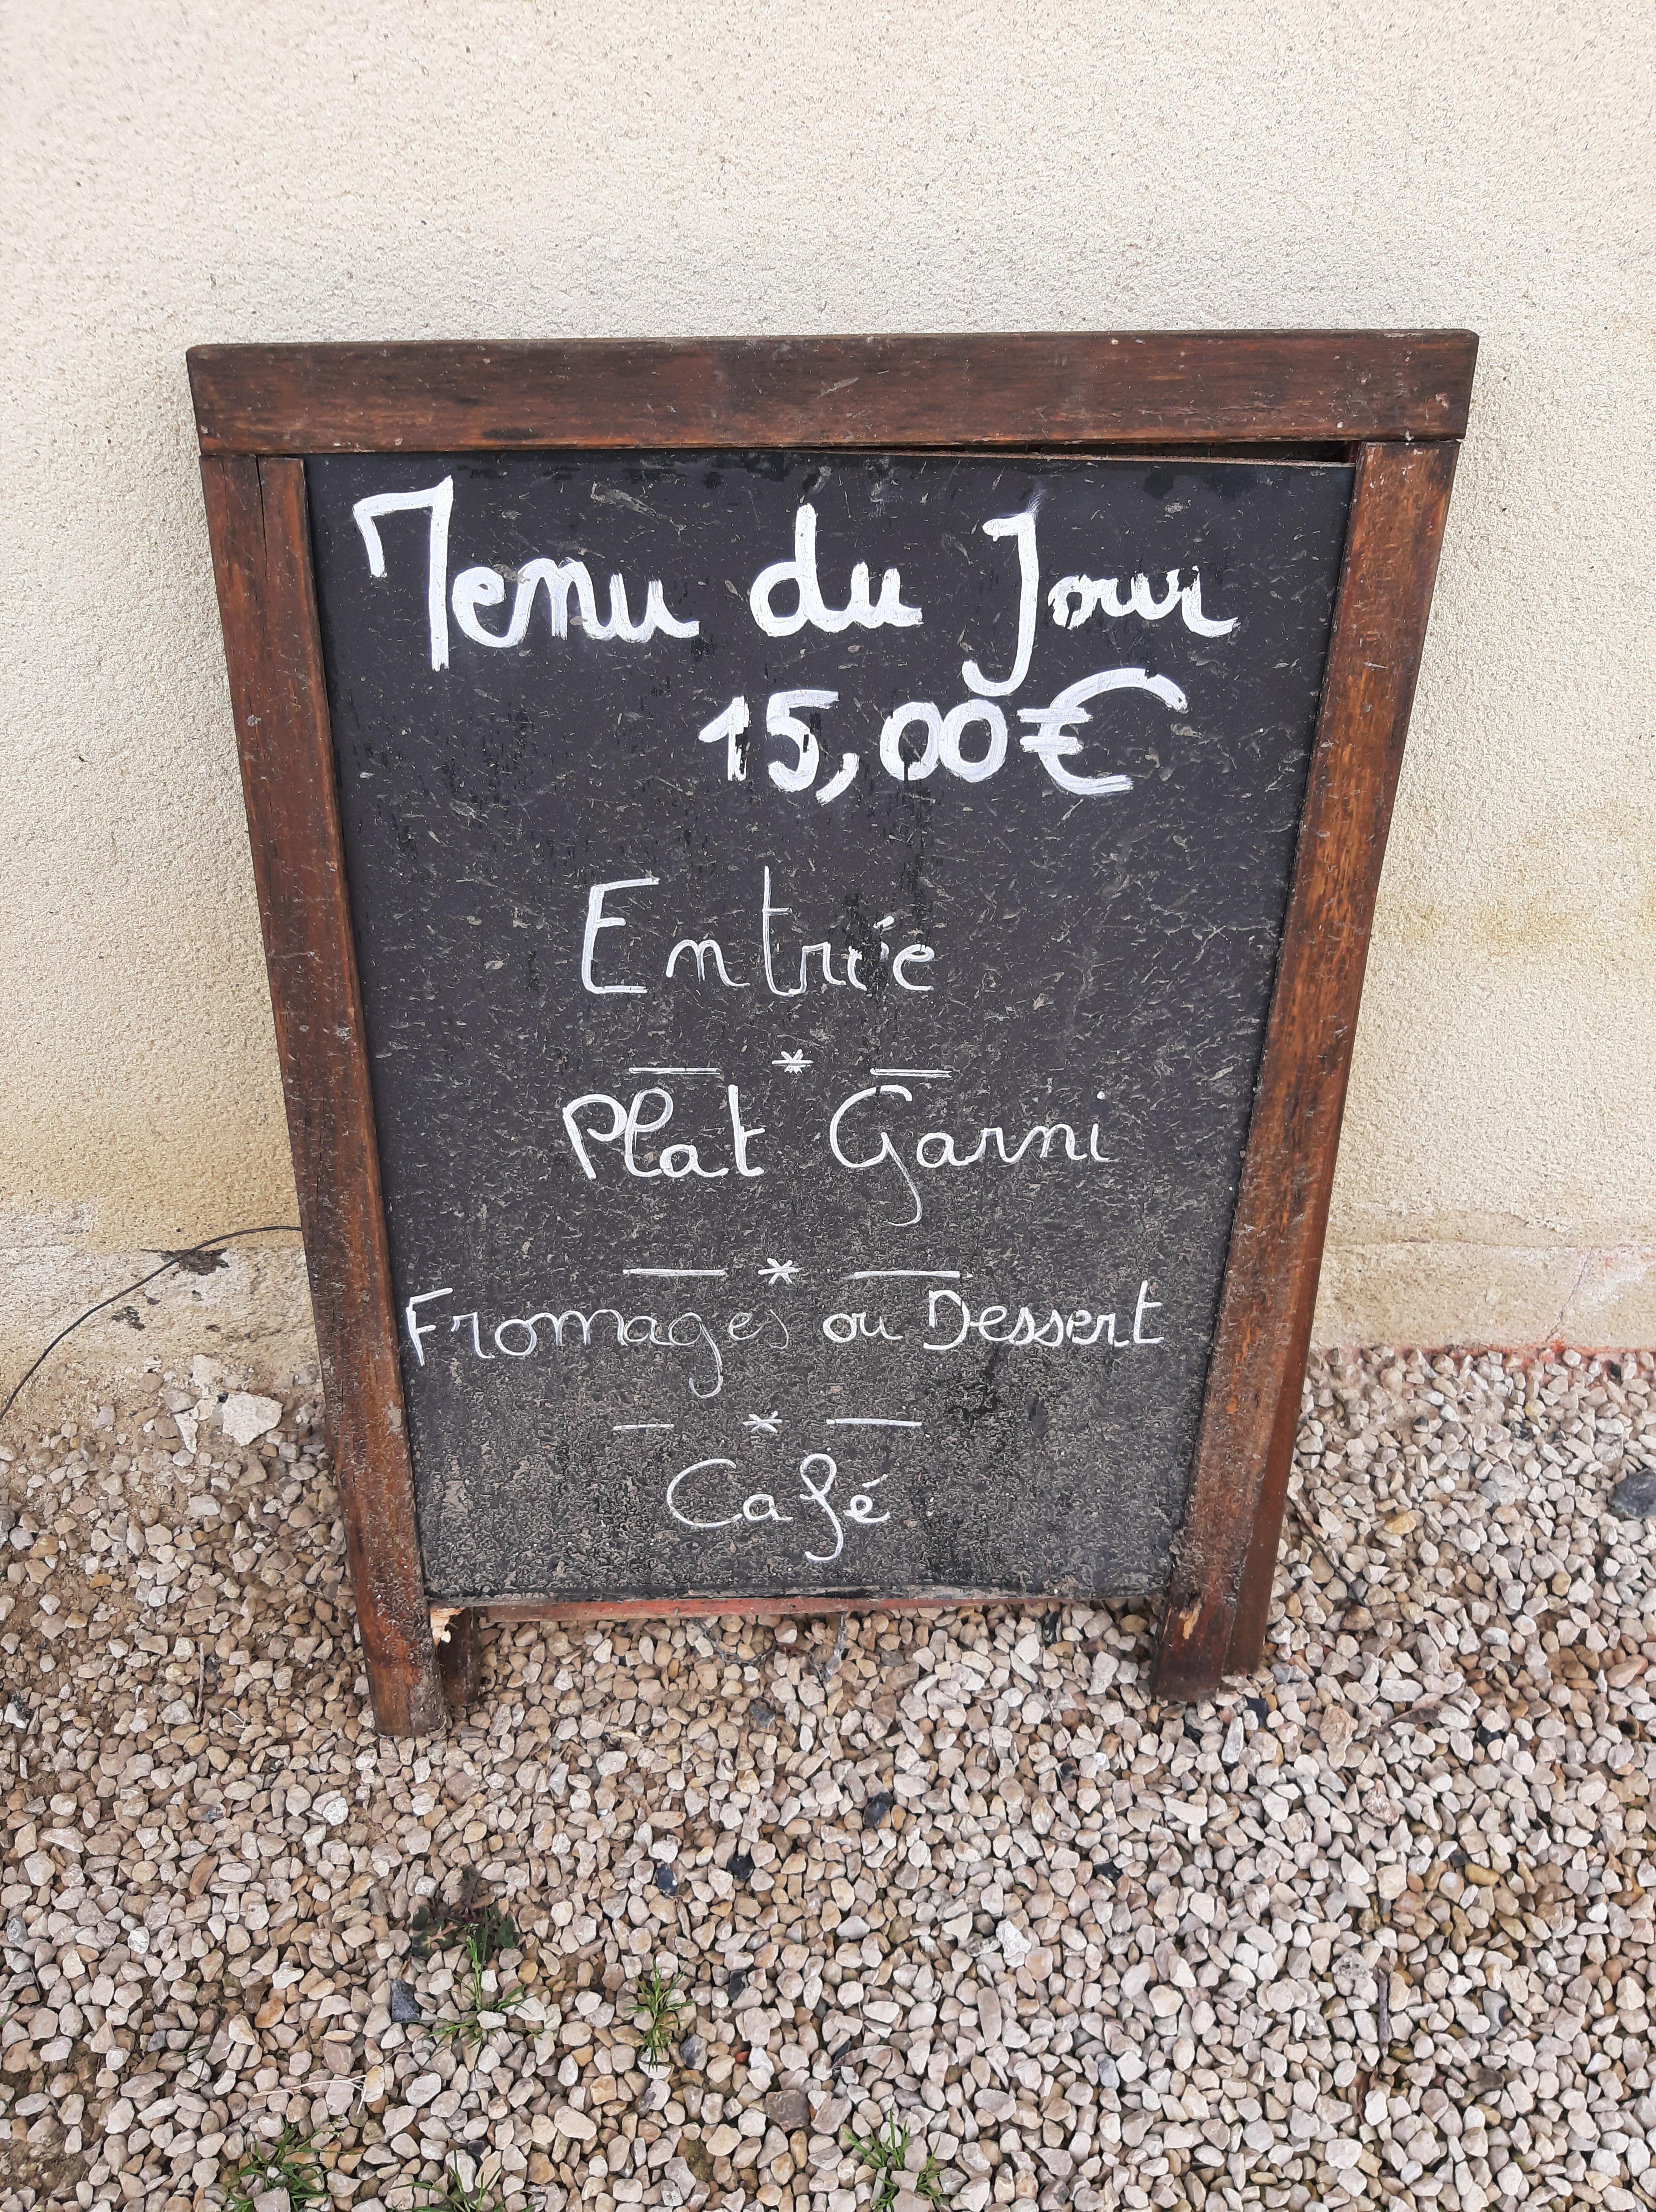 Menu du Jour
15,00€
Entrée
— * —
Plat Garni
— * —
Fromages ou Dessert
— * —
Café